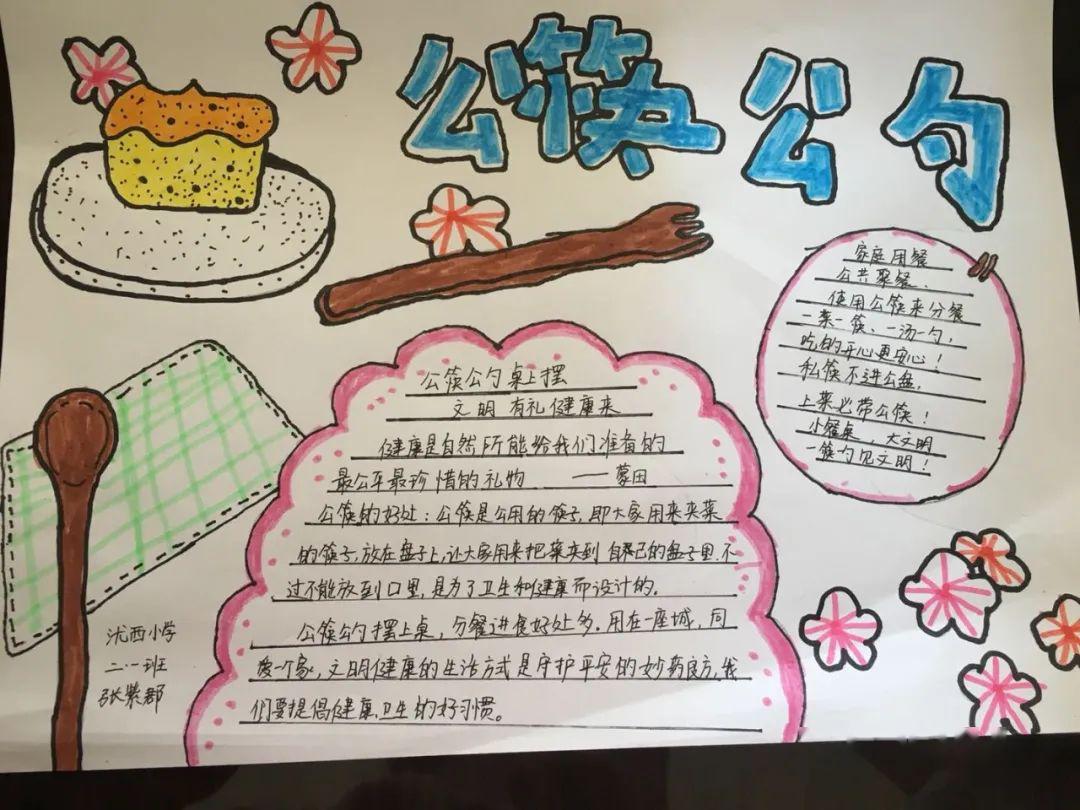 公筷 公勺
家庭用餐
公共聚餐、
使用公筷来分餐
一菜一筷、一汤一勺，
吃的开心更安心！
私筷不进公盘，
上菜必带公筷！
小餐桌，大文明
一筷勺见文明！
公筷公勺桌上摆
文明有礼健康来
健康是自然所能给我们准备的
最公平最珍惜的礼物 ——蒙田
公筷的好处：公筷是公用的筷子，即大家用来夹菜
的筷子，放在盘子上，让大家用来把菜夹到自己的盘子里，不
过不能放到口里，是为了卫生和健康而设计的。
公筷公勺摆上桌，分餐进食好处多。用在一座城，同
爱一个家，文明健康的生活方式是守护平安的妙药良方，我
们要提倡健康、卫生的好习惯。
沈西小学
二·一班
张紫郡